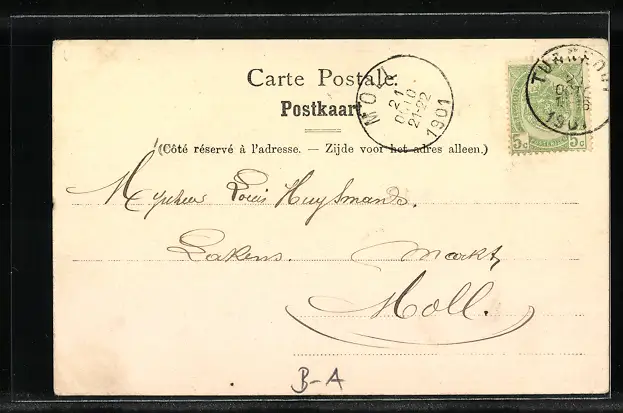 Carte Postale.
Postkaart
(Côté réservé à l'adresse. — Zijde voor het adres alleen.)
MOLL
21
OCT
21-22
1901
TURNHOUT
1901
5c 5c
Mynheer Louis Huysmans.
Lakens. Markt,
Moll.
B-A